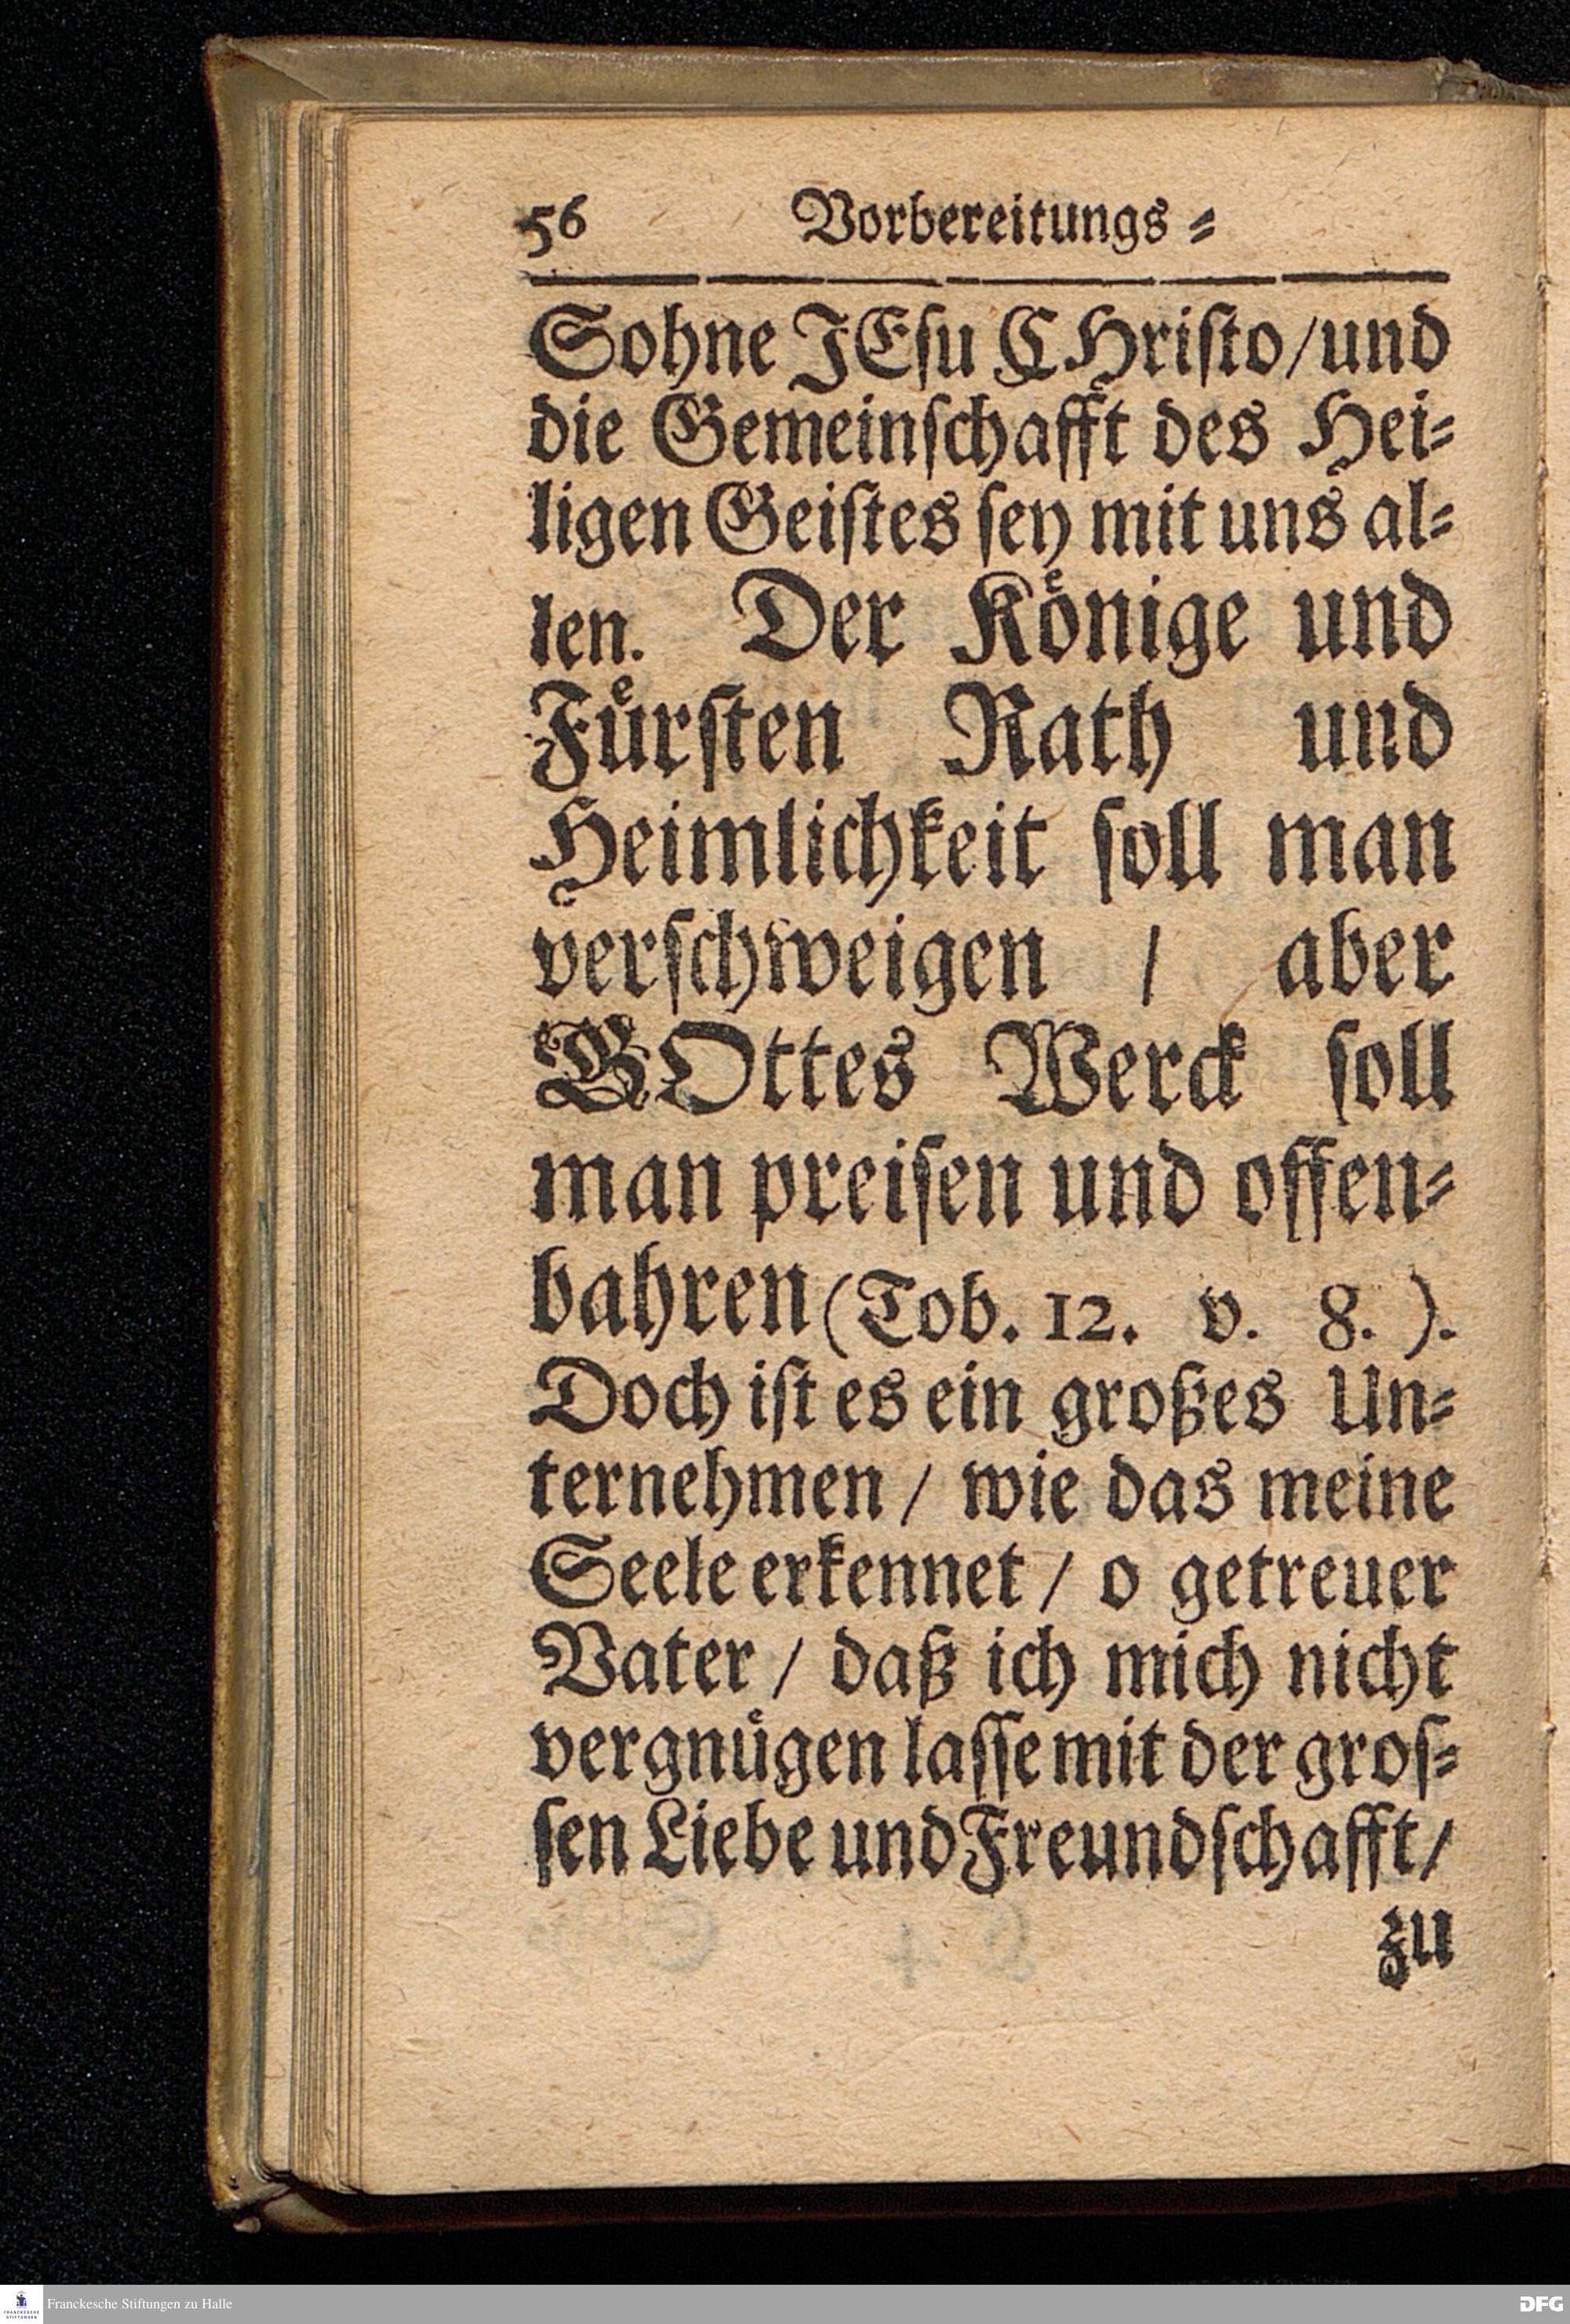 56 Vorbereitungs⸗
Sohne JEſu CHriſto/und
die Gemeinſchafft des Hei⸗
ligen Geiſtes ſey mit uns al⸗
len. Der Koͤnige und
Fuͤrſten Rath und
Heimlichkeit ſoll man
verſchweigen / aber
GOttes Werck ſoll
man preiſen und offen⸗
bahren (Tob. 12. v. 8. ).
Doch iſt es ein großes Un⸗
ternehmen / wie das meine
Seele erkennet / o getreuer
Vater / daß ich mich nicht
vergnuͤgen laſſe mit der groſ⸗
ſen Liebe und Freundſchafft/
zu
FRANCKESCHE
STIFTUNGEN
Franckesche Stiftungen zu Halle
DFG